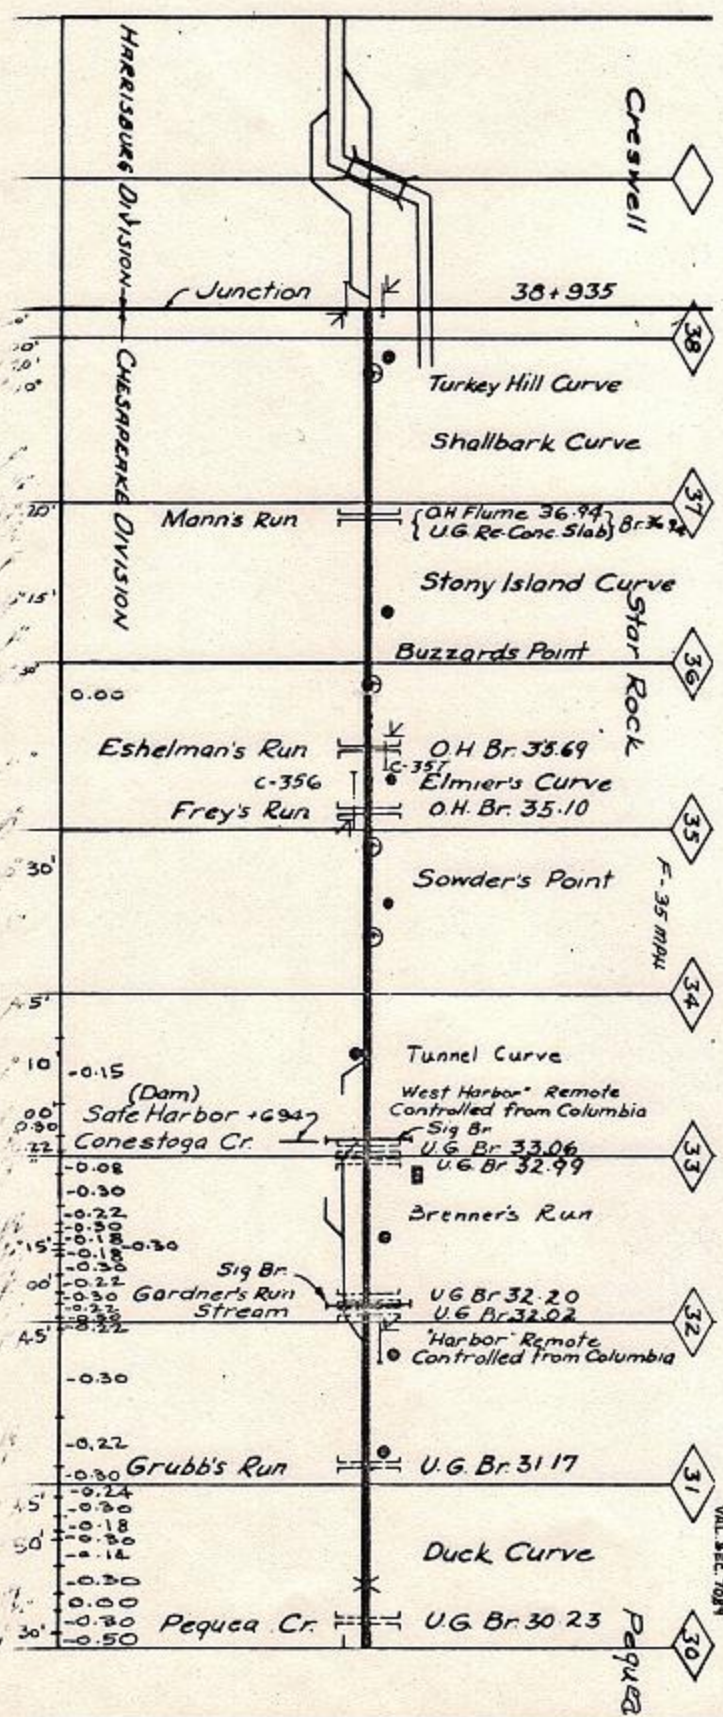 Creswell
HARRISBURG DIVISION
CHESAPEAKE DIVISION
Junction
38+935
38
Turkey Hill Curve
Shallbark Curve
37
Mann's Run
O.H Flume 36.94
U.G. Re-Conc. Slab
Br. 36.94
20'
Stony Island Curve
15'
Star Rock
Buzzards Point
36
30'
0.00
Eshelman's Run
O.H Br. 35.69
C-357
C-356
Elmier's Curve
Frey's Run
O.H. Br. 35.10
35
30'
Sowder's Point
F-35 MPH
34
45'
Tunnel Curve
10'
-0.15
(Dam)
Safe Harbor +6947
West Harbor" Remote
Controlled from Columbia
Sig Br
Conestoga Cr.
U.G. Br 33.06
33
U.G. Br 32.99
-0.08
-0.30
-0.22
-0.30
-0.18
-0.30
-0.18
-0.30
-0.22
-0.30
-0.22
-0.22
15'
00'
45'
Brenner's Run
Sig Br.
Gardner's Run
Stream
U G Br 32.20
U.G. Br. 32.02
32
"Harbor" Remote
Controlled from Columbia
-0.30
-0.22
-0.30
Grubb's Run
U.G. Br. 31 17
31
-0.24
-0.30
-0.18
-0.30
-0.14
-0.30
0.00
-0.30
-0.50
50'
30'
Duck Curve
VAL. SEC. 
Pequea Cr.
U.G. Br 30 23
30
Pequea